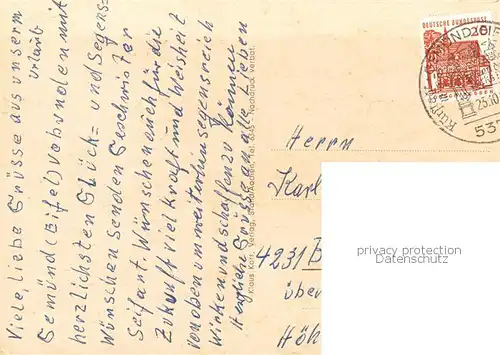 Viele, liebe Grüsse aus unserm
Urlaub
Gemünd (Eifel) Vebunden mit
herzlichsten Glück= und Segens=
Wünschen senden Geschwister
Seifart. Wünschen euch für die
Zukunft viel Kraft und Weisheit
von oben um weiterhin segensreich
Wirken und schaffen zu können
Herzliche Grüsse an alle Lieben
Klaus Korr, Verlag, Nachdruck verbot.
DEUTSCHE BUNDESPOST
20
Herrn
Karl
4231 B
über
Höh
privacy protection
Datenschutz